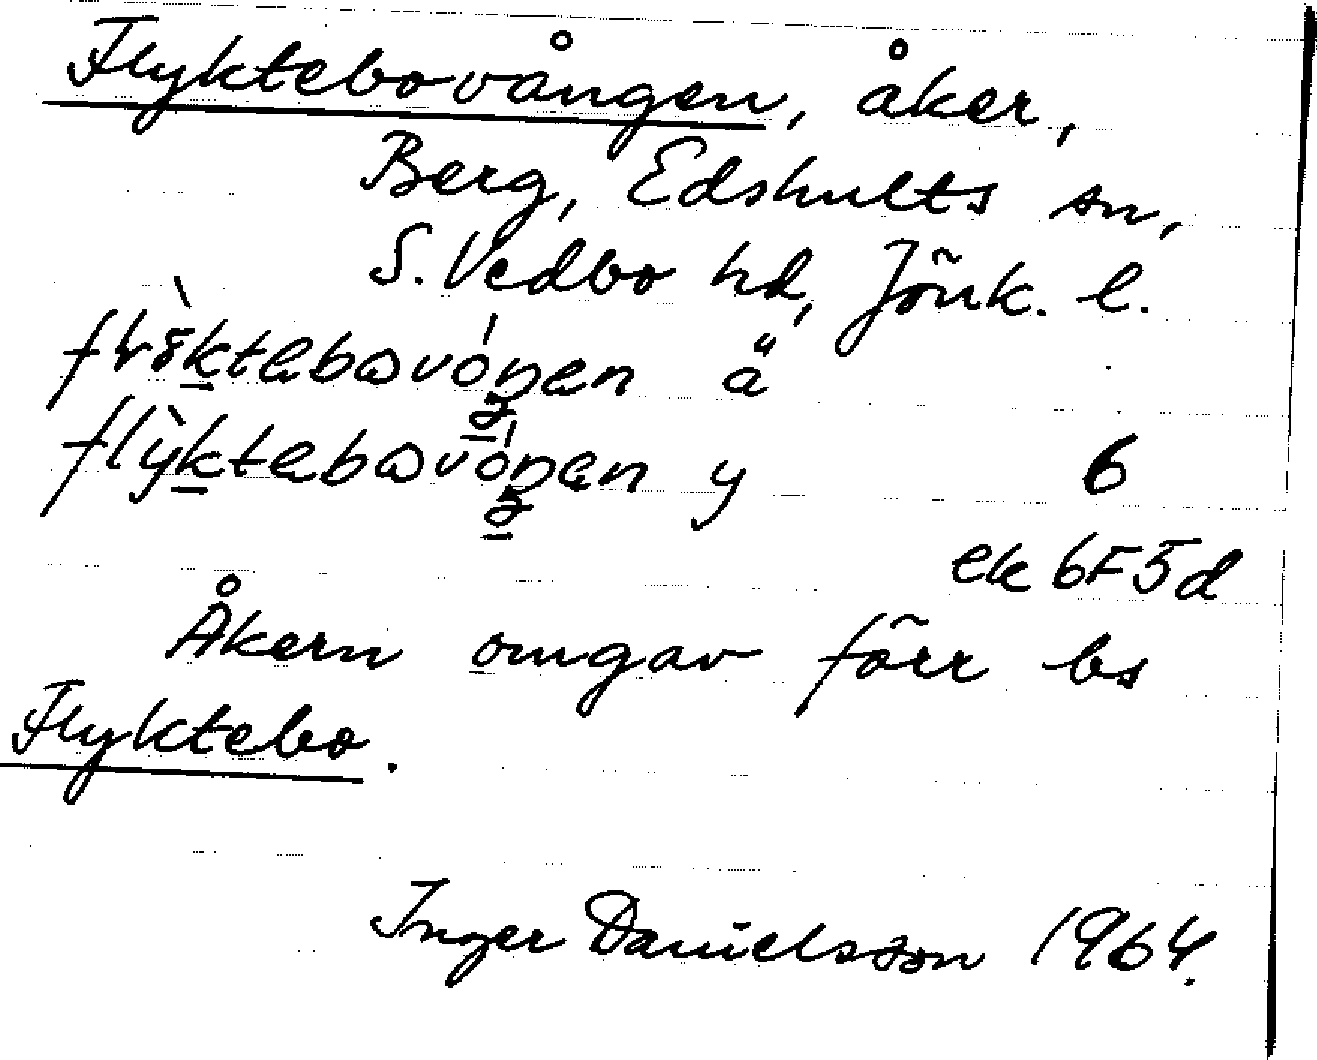 Flyktebovången, åker,
Berg, Edshults sn,
S. Vedbo hd, Jönk. l.
ä
flyktebovåŋen y 6
ek 6F5d
Åkern omgav förr bs
Flyktebo.
Inger Danielsson 1964.